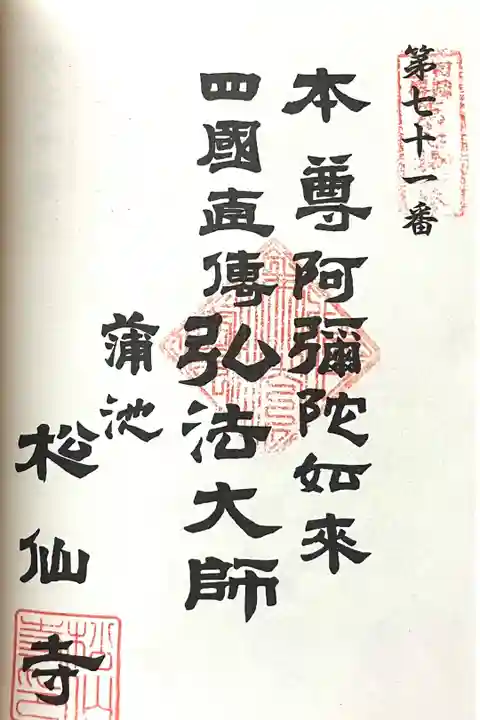 第七十一番
本尊阿彌陀如來
四國直傳弘法大師
蒲池
松仙寺